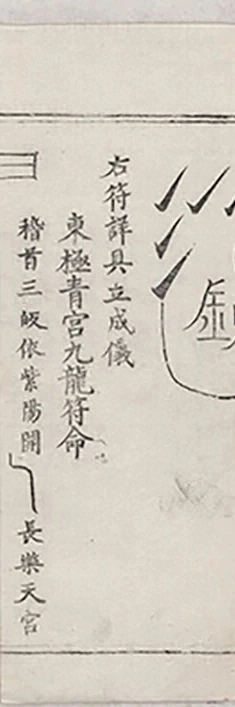 右符詳具立成儀
東極青宮九龍符命
稽首三皈依紫陽開
長樂天宮